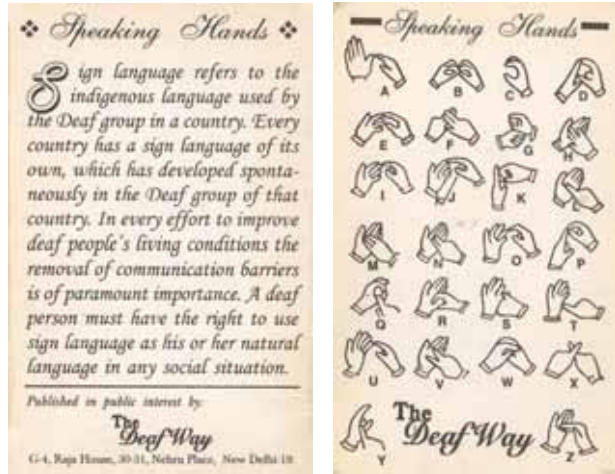 Speaking Hands
Sign language refers to the
indigenous language used by
the Deaf group in a country. Every
country has a sign language of its
own, which has developed sponta-
neously in the Deaf group of that
country. In every effort to improve
deaf people's living conditions the
removal of communication barriers
is of paramount importance. A deaf
person must have the right to use
sign language as his or her natural
language in any social situation.
Published in public interest by:
The
Deaf Way
G-4, Raja House, 30-31, Nehru Place, New Delhi-19
Speaking Hands
A B C D
E F G H
I J K L
M N O P
Q R S T
U V W X
The
Deaf Way
Y Z